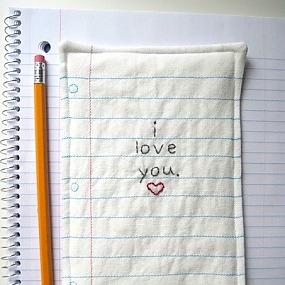 i
love
you.